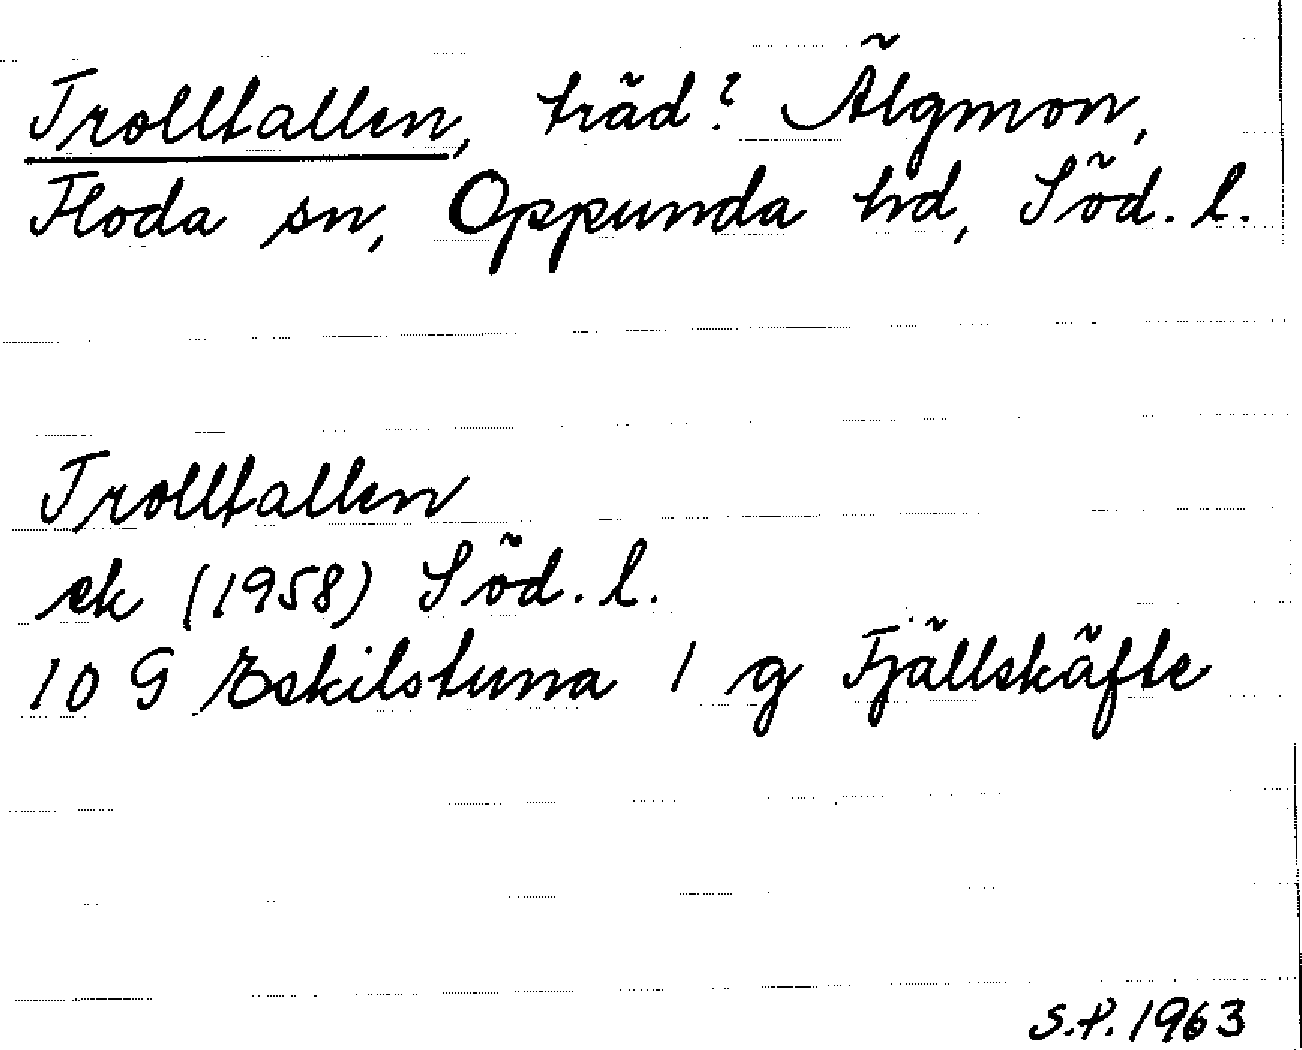 Trolltallen, träd? Älgmon,
Floda sn, Oppunda hd, Söd. l.
Trolltallen
ek (1958) Söd. l.
10 G Eskilstuna 1 g Fjällskäfte
S.P. 1963